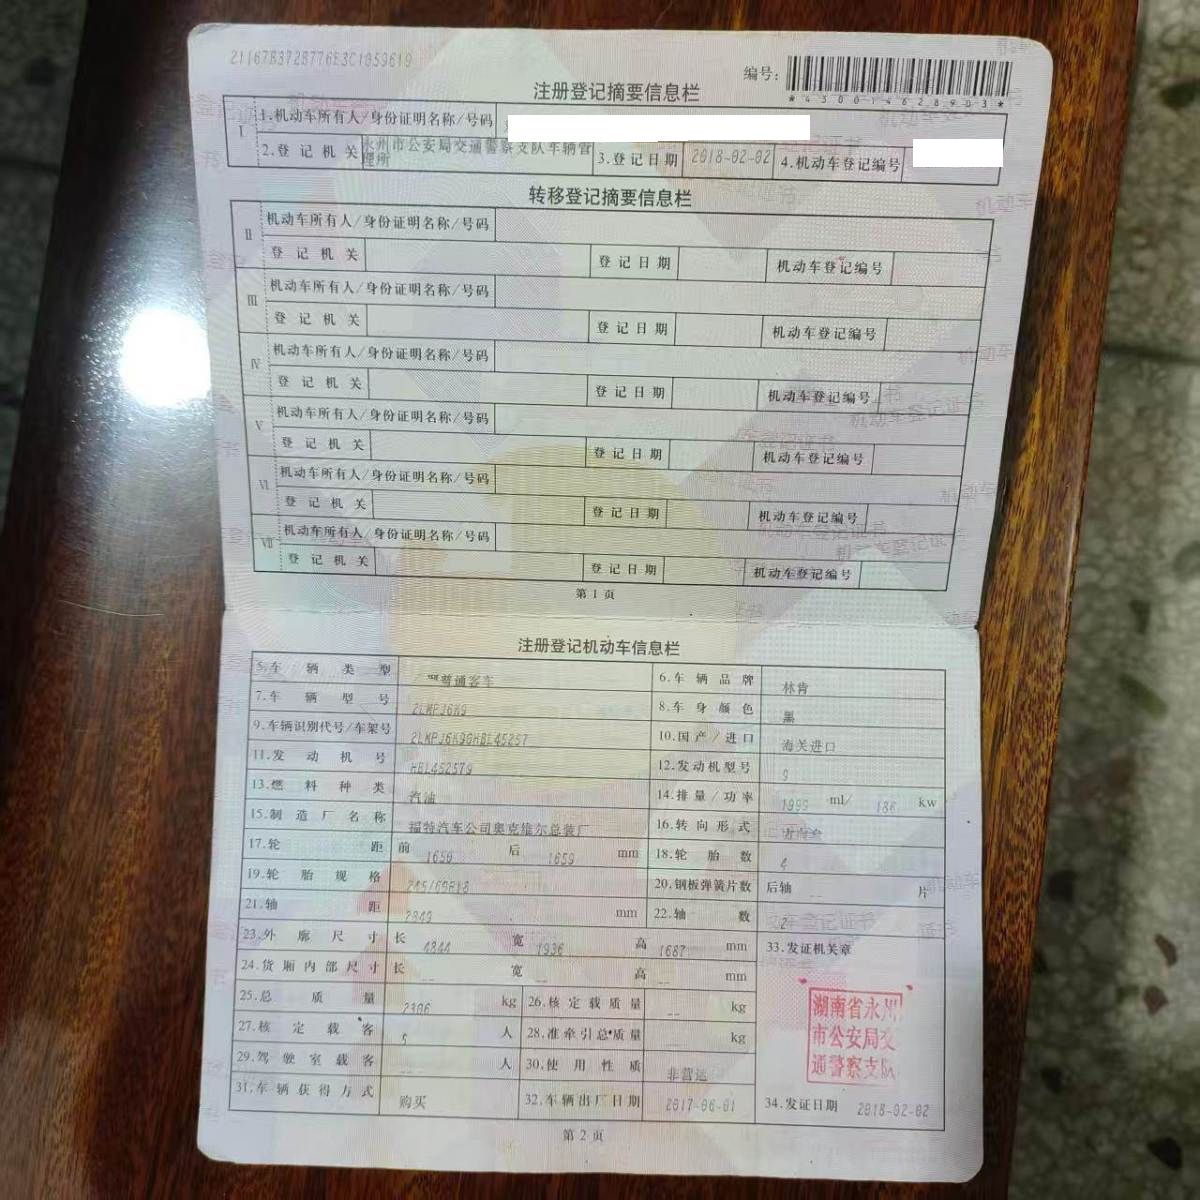 21167B3728776E3C1059619
编号:
*430014628903*
注册登记摘要信息栏
I
1.机动车所有人/身份证明名称/号码
2.登记机关 永州市公安局交通警察支队车辆管理所 3.登记日期 2018-02-02 4.机动车登记编号
转移登记摘要信息栏
II 机动车所有人/身份证明名称/号码
登记机关 登记日期 机动车登记编号
III 机动车所有人/身份证明名称/号码
登记机关 登记日期 机动车登记编号
IV 机动车所有人/身份证明名称/号码
登记机关 登记日期 机动车登记编号
V 机动车所有人/身份证明名称/号码
登记机关 登记日期 机动车登记编号
VI 机动车所有人/身份证明名称/号码
登记机关 登记日期 机动车登记编号
VII 机动车所有人/身份证明名称/号码
登记机关 登记日期 机动车登记编号
第1页
注册登记机动车信息栏
5.车辆类型 普通客车 6.车辆品牌 林肯
7.车辆型号 2LMPJ6K9 8.车身颜色 黑
9.车辆识别代号/车架号 10.国产/进口 海关进口
11.发动机号 12.发动机型号 9
13.燃料种类 汽油 14.排量/功率 1999 ml/ kw
15.制造厂名称 福特汽车公司奥克维尔总装厂 16.转向形式
17.轮距 前 1659 后 1659 mm 18.轮胎数 4
19.轮胎规格 20.钢板弹簧片数 后轴 -- 片
21.轴距 2849 mm 22.轴数 2
23.外廓尺寸 长 4844 宽 1936 高 1687 mm 33.发证机关章
24.货厢内部尺寸 长 -- 宽 -- 高 -- mm
25.总质量 2306 kg 26.核定载质量 -- kg
27.核定载客 5 人 28.准牵引总质量 -- kg
29.驾驶室载客 -- 人 30.使用性质 非营运
31.车辆获得方式 购买 32.车辆出厂日期 2017-06-01 34.发证日期 2018-02-02
湖南省永州
市公安局交
通警察支队
第2页